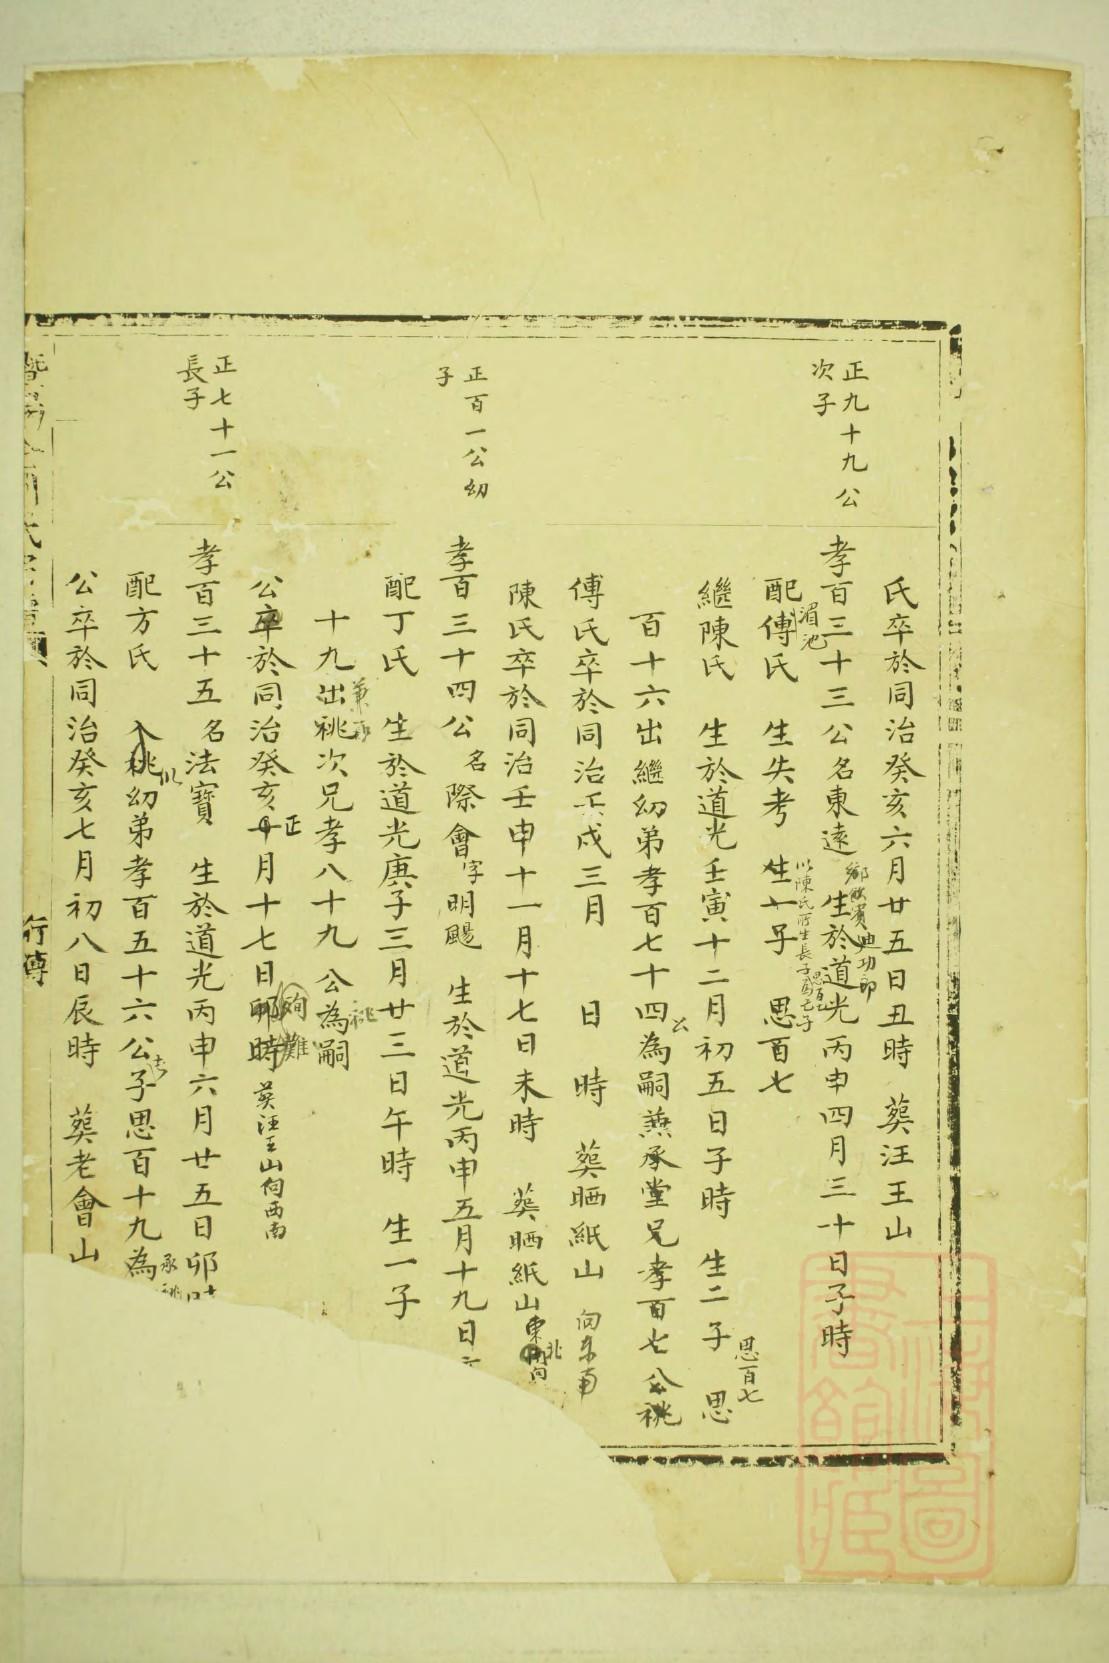 氏卒於同治癸亥六月廿五日丑時　葬汪王山
正九十九公
次子
孝百三十三公名東遠　生於道光丙申四月三十日子時
鄉飲賓迪功郎
配傅氏　生失考　生一子　思百七
湄池
以陳氏所生長子思百七為己子
繼陳氏　生於道光壬寅十二月初五日子時　生二子　思
思百七
百十六出繼幼弟孝百七十四為嗣兼承堂兄孝百七公祧
公
傅氏卒於同治壬戌三月　日　時　葬晒紙山　向东南
陳氏卒於同治壬申十一月十七日未時　葬晒紙山東向
北
正百一公幼
子
孝百三十四公名際會字明颺　生於道光丙申五月十九日
配丁氏　生於道光庚子三月廿三日午時　生一子
十九出祧次兄孝八十九公為嗣
兼
祧
公卒於同治癸亥月十七日卯時　葬汪王山向西南
正
殉難
正七十一公
長子
孝百三十五名法寶　生於道光丙申六月廿五日卯時
配方氏　入祧幼弟孝百五十六公子思百十九為
以
承祧
公卒於同治癸亥七月初八日辰時　葬老會山
行傳